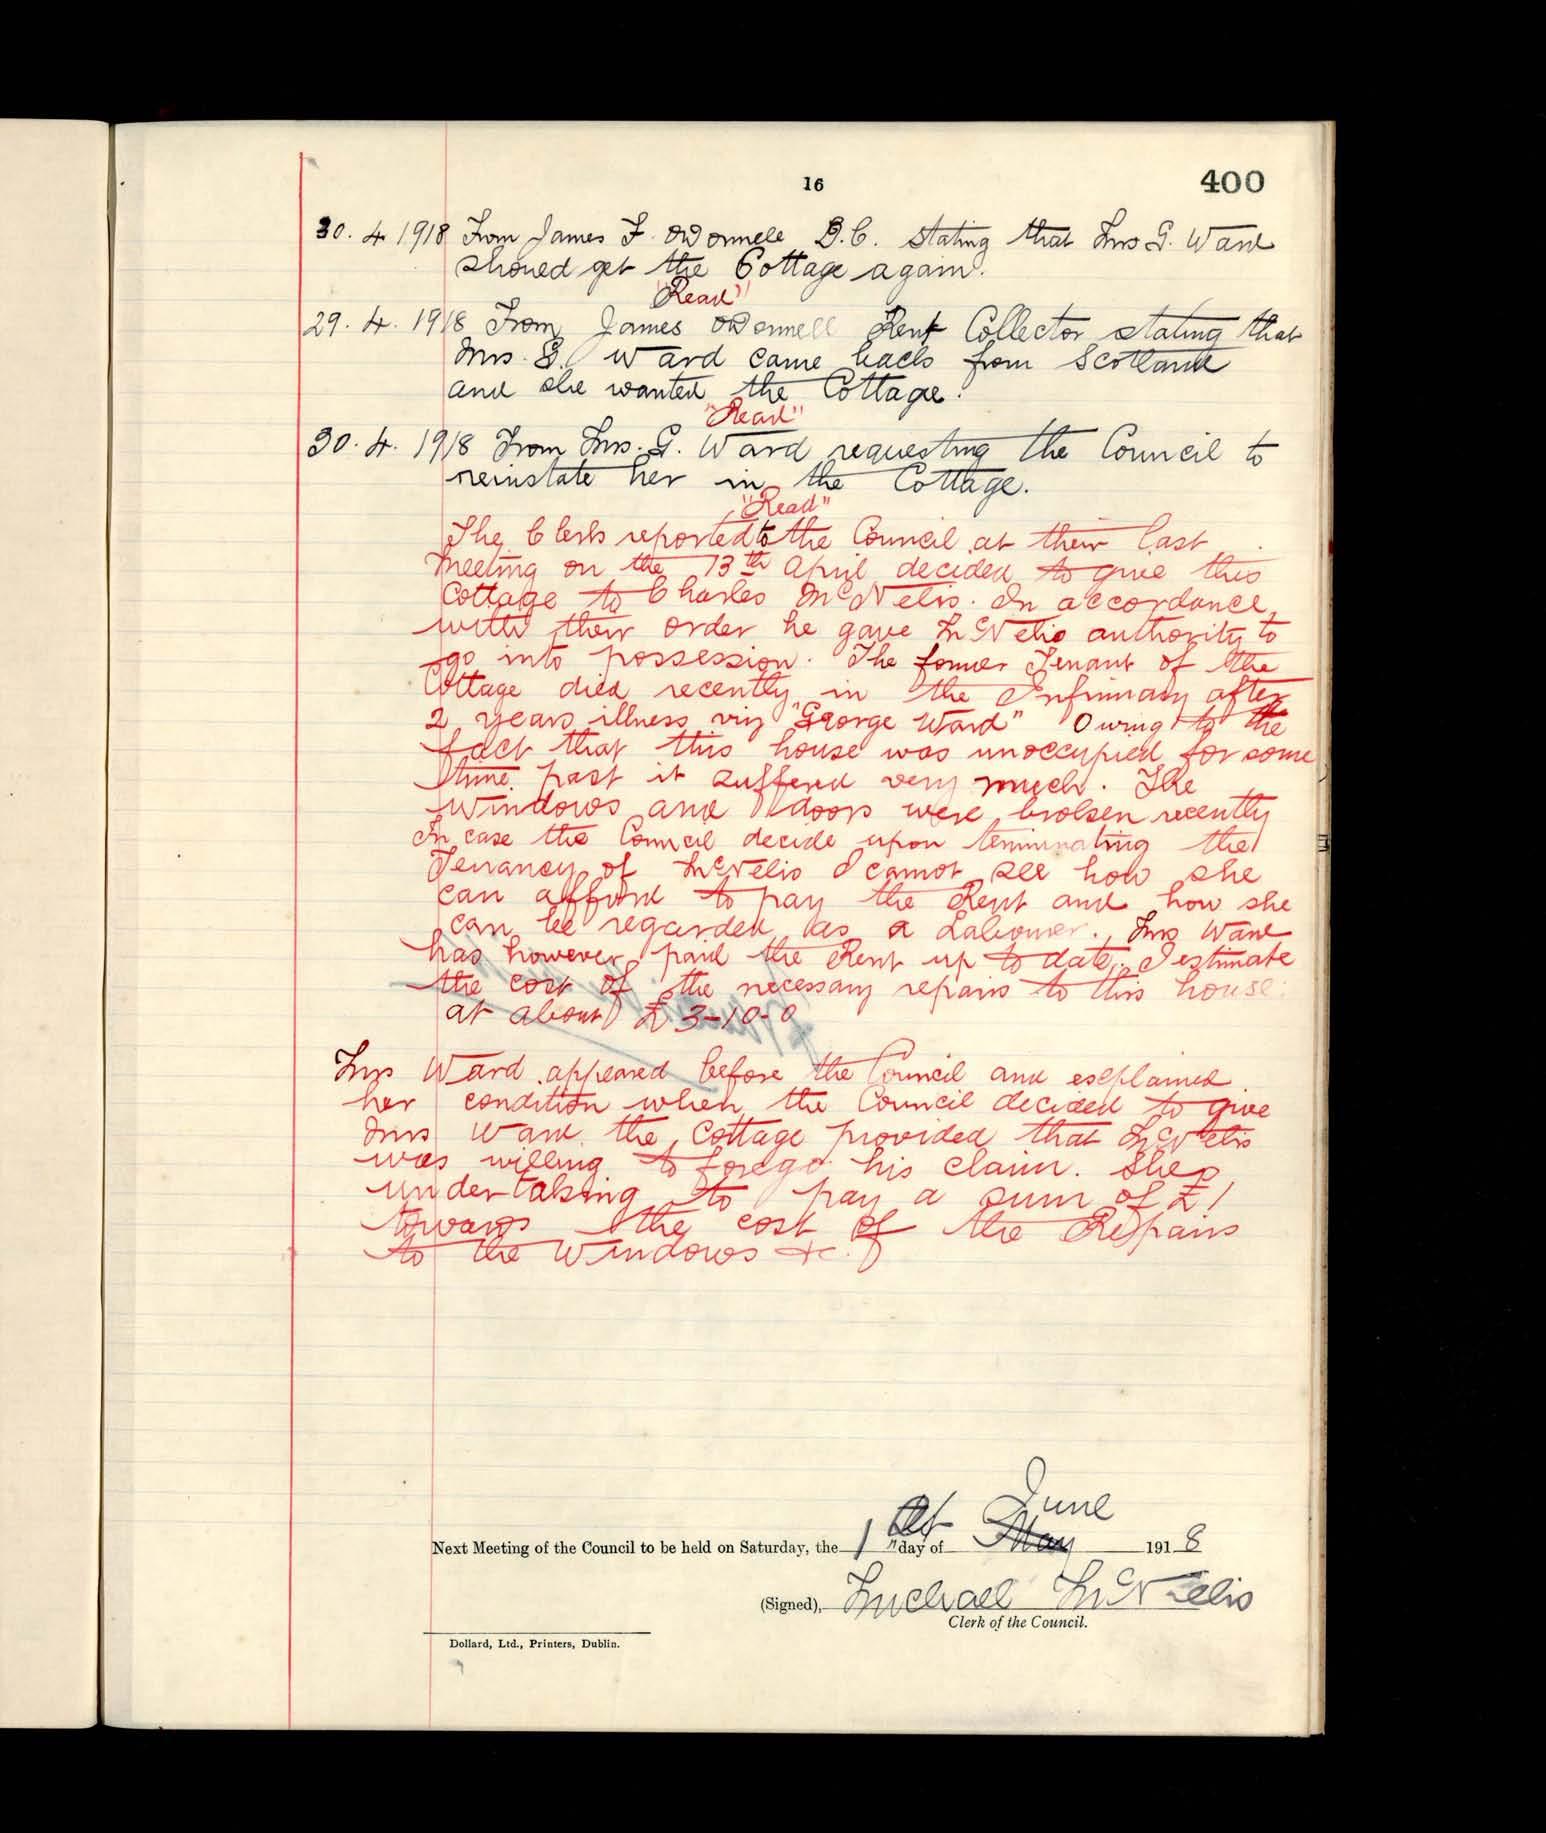 16
400
30. 4. 1918 From James F. O'Donnell D.C. stating that Mrs G. Ward
should get the Cottage again.
"Read"
29. 4. 1918 From James O'Donnell Rent Collector stating that
Mrs. G. Ward came back from Scotland
and she wanted the Cottage.
"Read"
30. 4. 1918 From Mrs. G. Ward requesting the Council to
reinstate her in the Cottage.
"Read"
The Clerk reported to the Council at their last
meeting on the 13th April decided to give this
Cottage to Charles McNelis. In accordance
with their order he gave McNelis authority to
go into possession. The former Tenant of the
Cottage died recently in the Infirmary after
2 years illness viz "George Ward" Owing to the
fact that this house was unoccupied for some
time past it suffered very much. The
windows and doors were broken recently
In case the Council decide upon terminating the
Tenancy of McNelis I cannot see how she
can afford to pay the Rent and how she
can be regarded as a Labourer. Mrs Ward
has however paid the Rent up to date. I estimate
the cost of the necessary repairs to this house
at about £3-10-0
Mrs Ward appeared before the Council and explained
her condition when the Council decided to give
Mrs Ward the Cottage provided that McNelis
was willing to forego his claim. She
undertaking to pay a sum of £1
towards the cost of the Repairs
to the windows &c.
June
Next Meeting of the Council to be held on Saturday, the 1st day of May 1918
(Signed), Michael McNelis
Clerk of the Council.
Dollard, Ltd., Printers, Dublin.